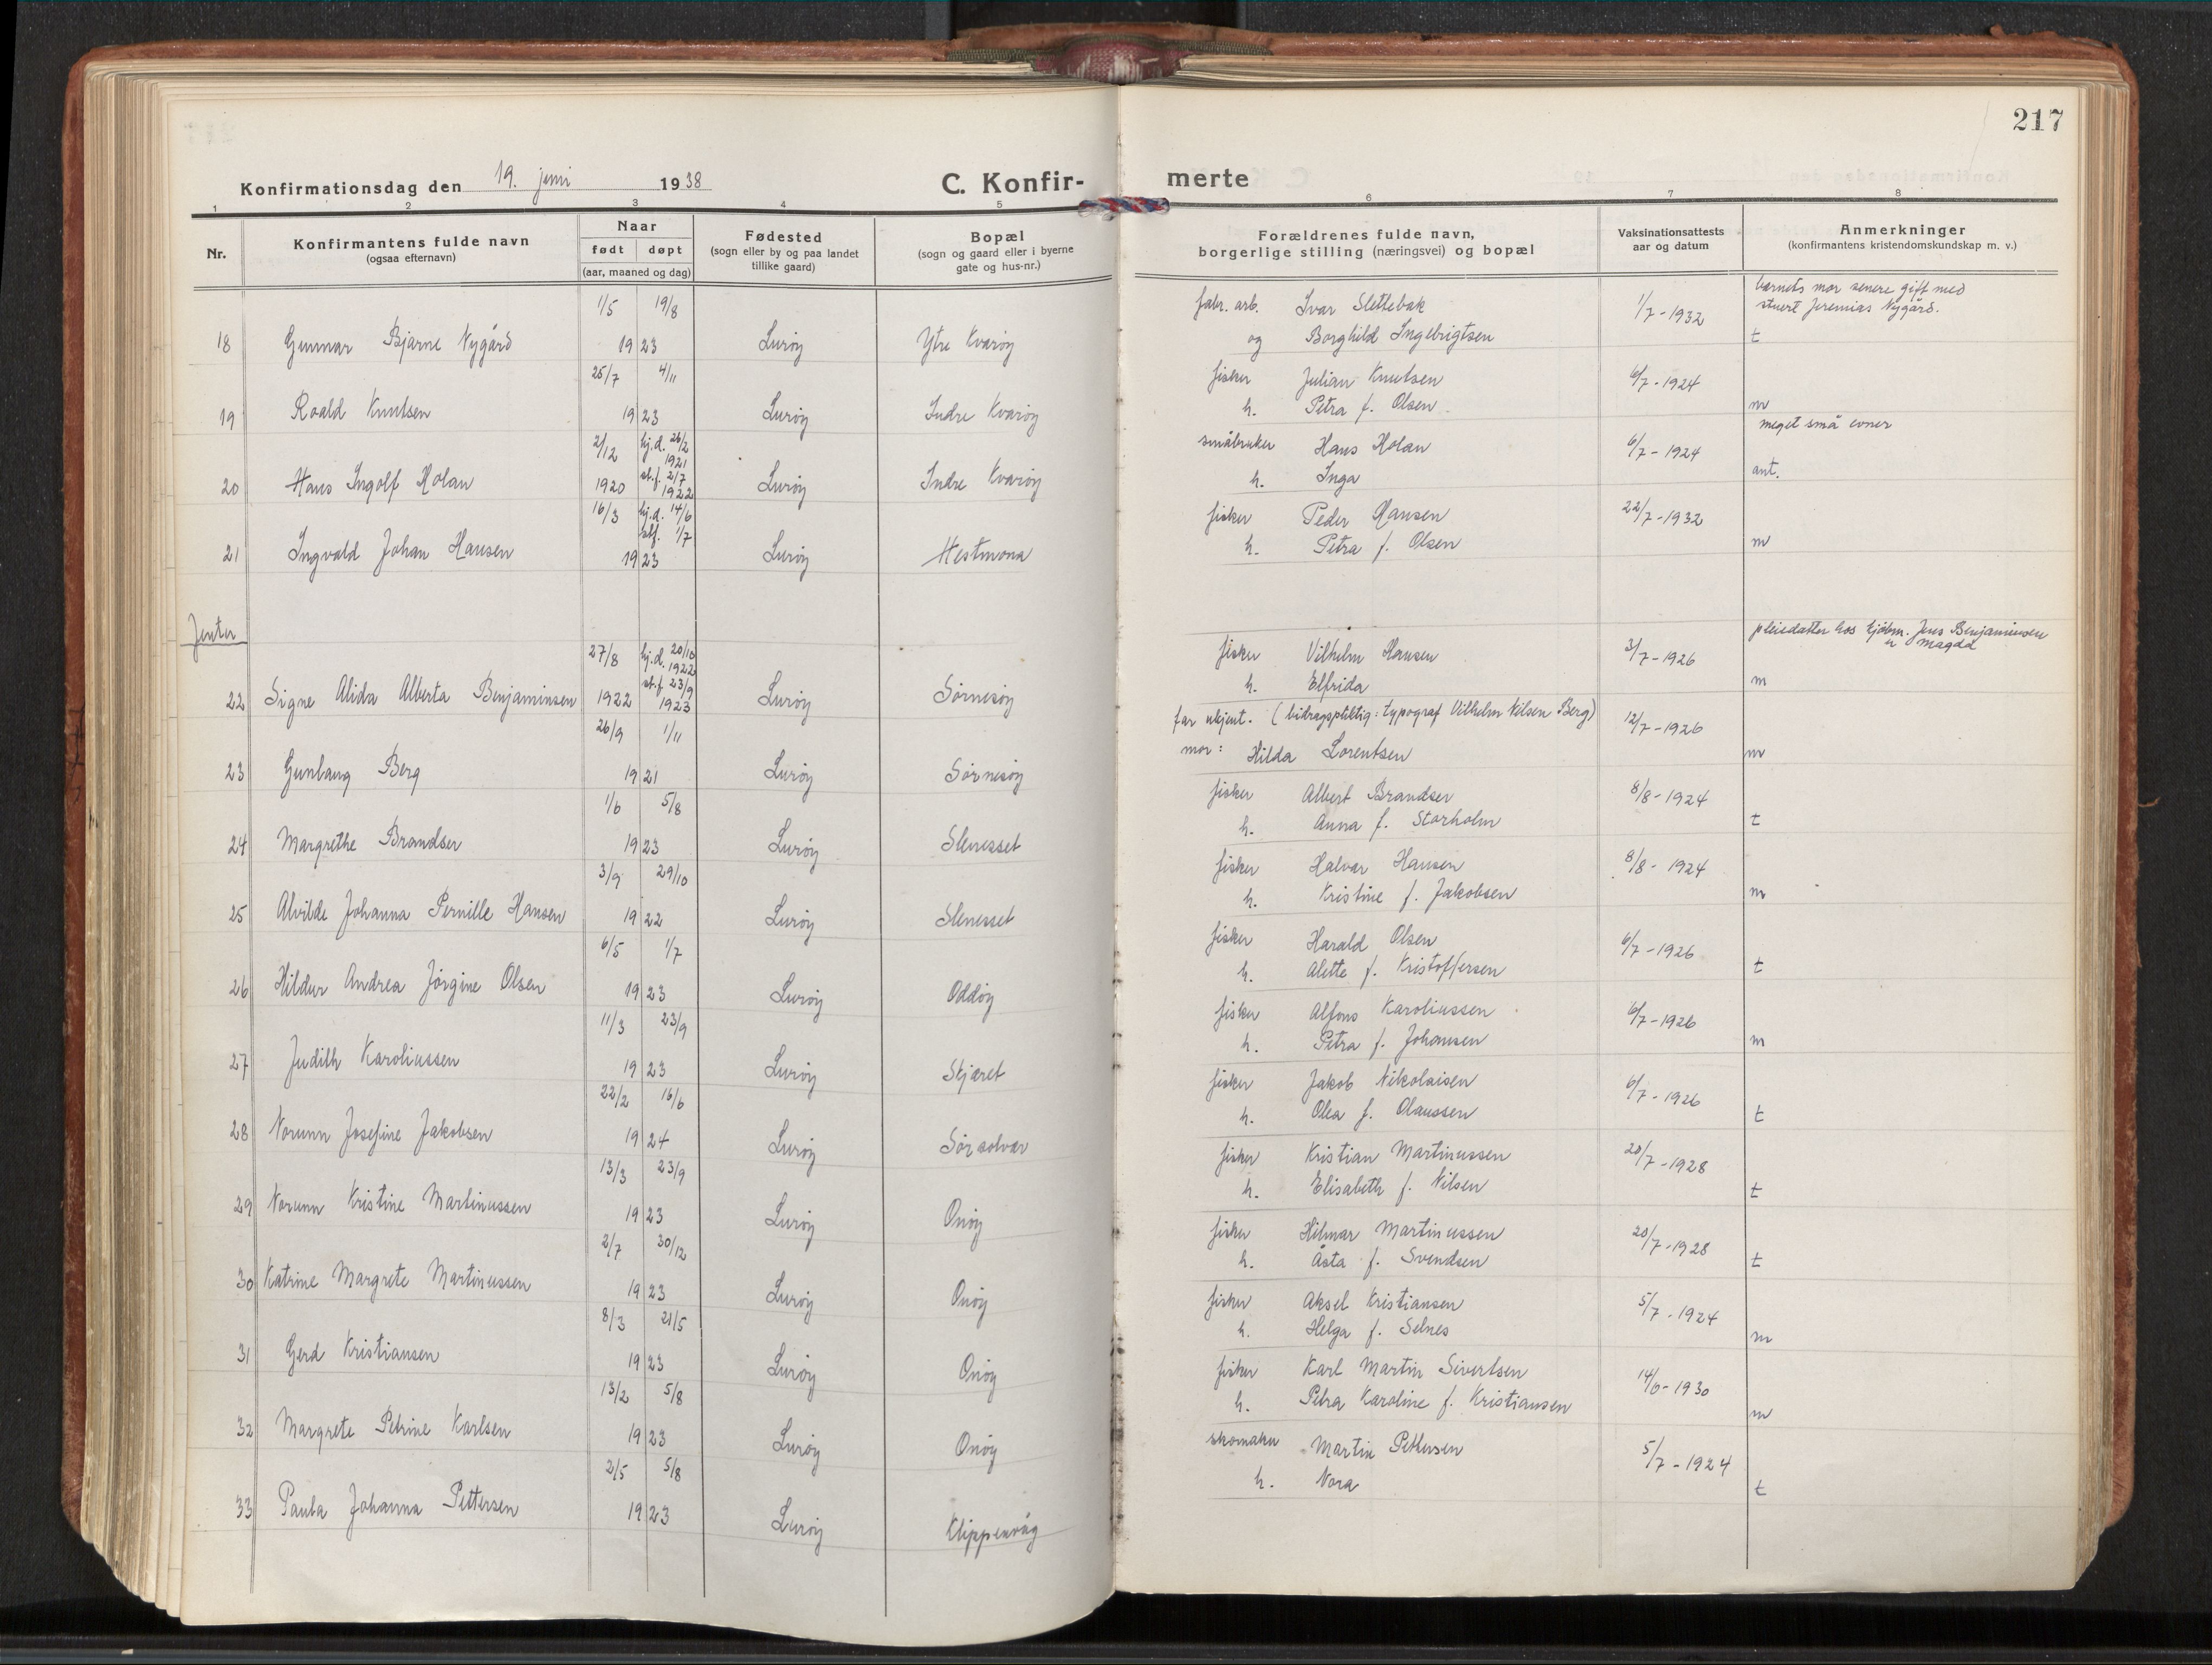 217
Konfirmationsdag den 19. juni 1938
C. Konfir-
merte
1 2 3 4 5 6 7 8
Nr.
Konfirmantens fulde navn
(ogsaa efternavn)
Naar
født døpt
(aar, maaned og dag)
Fødested
(sogn eller by og paa landet
tillike gaard)
Bopæl
(sogn og gaard eller i byerne
gate og hus-nr.)
Forældrenes fulde navn,
borgerlige stilling (næringsvei) og bopæl
Vaksinationsattests
aar og datum
Anmerkninger
(konfirmantens kristendomskundskap m. v.)
1/5 19/8
18 Gunnar Bjarne Nygård 1923 Lurøy Ytre Kvarøy
fabr. arb. Ivar Slettebak 1/7-1932
og Borghild Ingebrigtsen
barnets mor senere gift med
stuert Jeremias Nygård.
t
25/7 4/11
19 Roald Knutsen 1923 Lurøy Indre Kvarøy
fisker Julian Knutsen 6/7-1924
h. Petra f. Olsen m
2/12 hj.d. 26/2
1921
st.f. 2/7
20 Hans Ingolf Holan 1920 1922 Lurøy Indre Kvarøy
småbruker Hans Holan 6/7-1924
h. Inga
meget små evner
ant.
16/3 hj.d. 14/6
stf. 1/7
21 Ingvald Johan Hansen 1923 Lurøy Hestmona
fisker Peder Hansen 22/7-1932
h. Petra f. Olsen m
Jenter
27/8 hj.d. 20/10
1922
st.f. 23/9
22 Signe Alida Alberta Benjaminsen 1922 1923 Lurøy Sørnesøy
fisker Vilhelm Hansen 3/7-1926
h. Elfrida
pleiedatter hos kjøbm. Jens Benjaminsen
Magda
m
26/9 1/11
23 Gunlaug Berg 1921 Lurøy Sørnesøy
far ukjent. (bidragspliktig: typograf Vilhelm Nilsen Berg) 12/7-1926
mor: Hilda Lorentsen m
1/6 5/8
24 Margrethe Brandser 1923 Lurøy Slenesset
fisker Albert Brandser 8/8-1924
h. Anna f. Storholm t
3/9 29/10
25 Alvilde Johanna Pernille Hansen 1922 Lurøy Slenesset
fisker Halvar Hansen 8/8-1924
h. Kristine f. Jakobsen m
6/5 1/7
26 Hildur Andrea Jørgine Olsen 1923 Lurøy Oddøy
fisker Harald Olsen 6/7-1926
h. Alette f. Kristoffersen t
11/3 23/9
27 Judith Karoliussen 1923 Lurøy Skjæret
fisker Alfons Karoliussen 6/7-1926
h. Petra f. Johansen m
22/2 16/6
28 Norunn Josefine Jakobsen 1924 Lurøy Sørsolvær
fisker Jakob Nikolaisen 6/7-1926
h. Olea f. Olaussen t
13/3 23/9
29 Norunn Kristine Martinussen 1923 Lurøy Onøy
fisker Kristian Martinussen 20/7-1928
h. Elisabeth f. Nilsen t
2/7 30/12
30 Katrine Margrete Martinussen 1923 Lurøy Onøy
fisker Hilmar Martinussen 20/7-1928
h. Åsta f. Svendsen t
8/3 21/5
31 Gerd Kristiansen 1923 Lurøy Onøy
fisker Aksel Kristiansen 5/7-1924
h. Helga f. Selnes m
13/2 5/8
32 Margrete Petrine Karlsen 1923 Lurøy Onøy
fisker Karl Martin Sivertsen 14/6-1930
h. Petra Karoline f. Kristiansen m
2/5 5/8
33 Paula Johanna Pettersen 1923 Lurøy Klippenvåg
skomaker Martin Pettersen 5/7-1924
h. Nora t